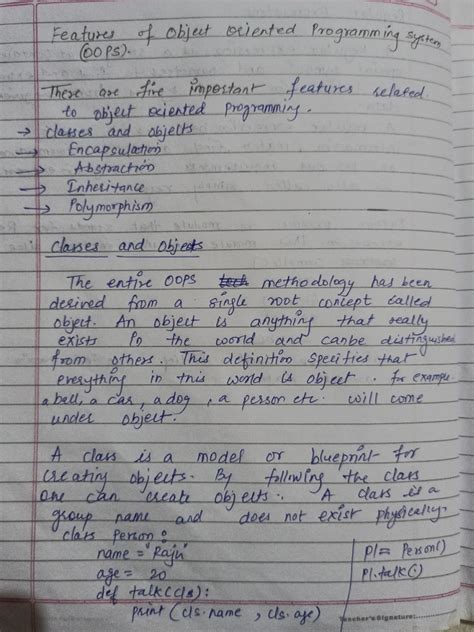 Features of Object Oriented Programming system
(OOPS).
There are five important features related
to object oriented programming.
→ classes and objects
→ Encapsulation
→ Abstraction
→ Inheritance
→ Polymorphism
Classes and Objects
The entire OOPS methodology has been
desired from a single root concept called
object. An object is anything that really
exists in the world and canbe distinguished
from others. This definition specifies that
everything in this world is object. for example
a ball, a car, a dog, a person etc. will come
under object.
A class is a model or blueprint for
creating objects. By following the class
one can create objects. A class is a
group name and does not exist physically.
class Person:
name = "Raju"
age = 20
def talk(cls):
print (cls.name, cls.age)
P1 = Person()
P1.talk()
Teacher's Signature: